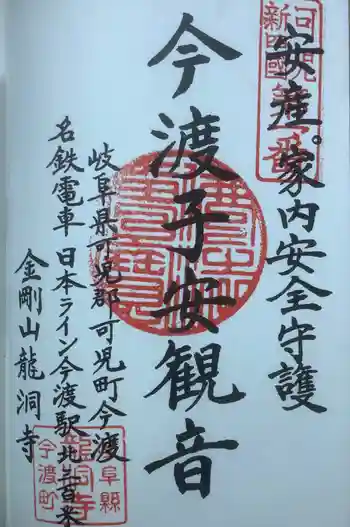 安産。家内安全守護
今渡子安観音
岐阜県可児郡可児町今渡
名鉄電車 日本ライン今渡駅北三百米
金剛山龍洞寺
可児
新四國
番
阜縣
龍洞寺
今渡町